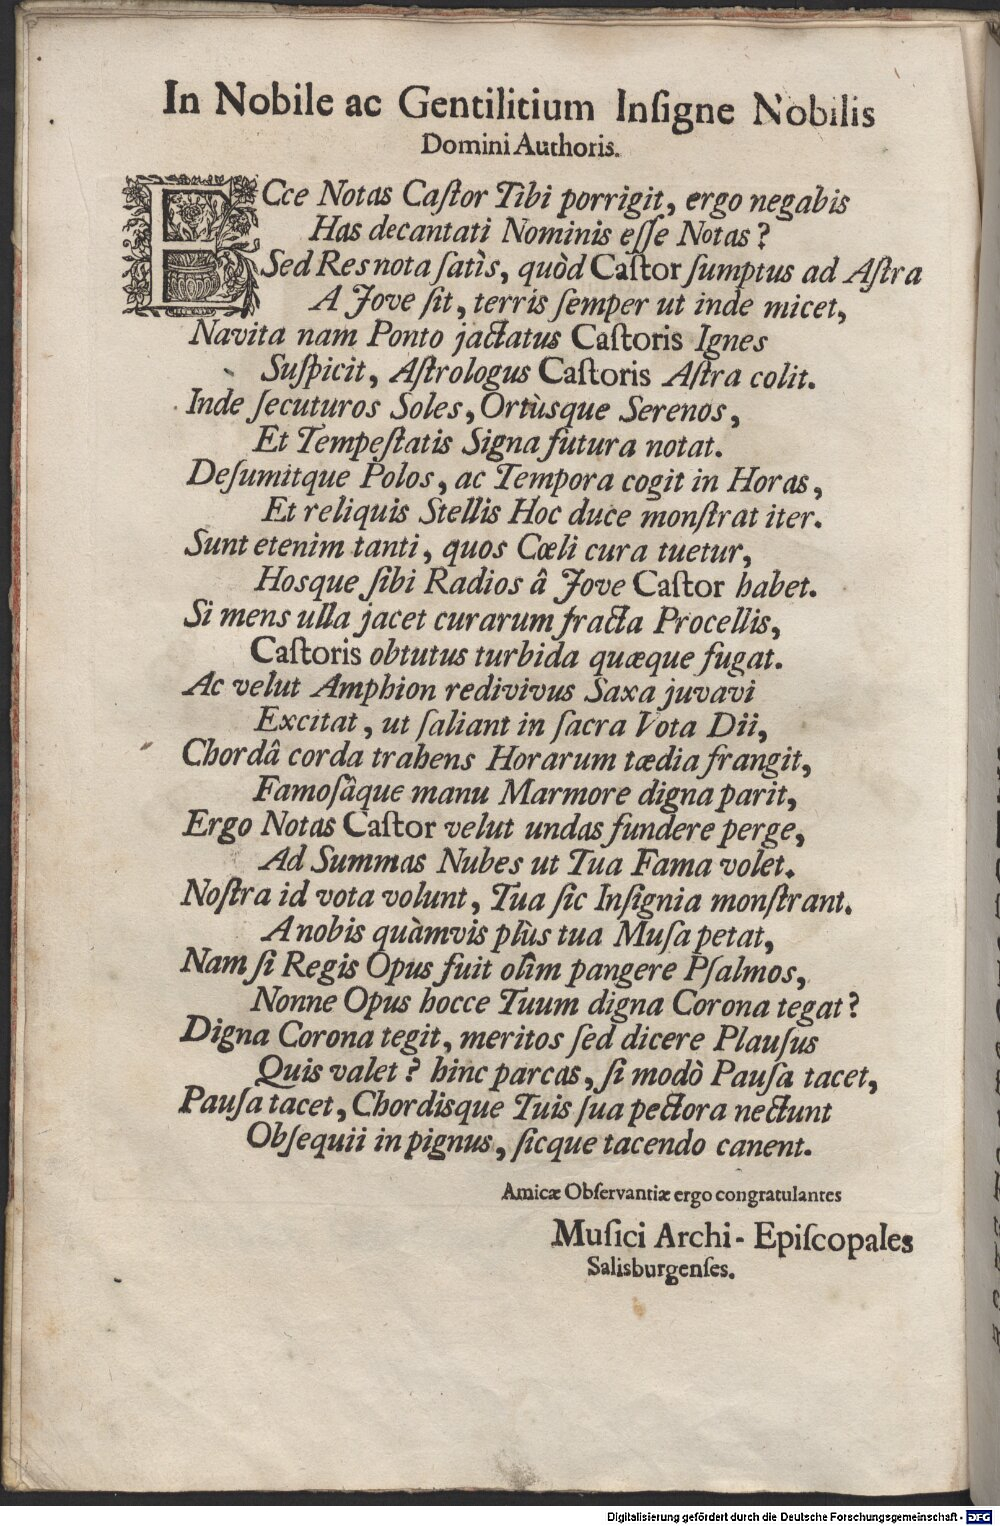 In Nobile ac Gentilitium Inſigne Nobilis
Domini Authoris.
ECce Notas Caſtor Tibi porrigit, ergo negabis
Has decantati Nominis eſſe Notas?
Sed Res nota ſatìs, quòd Caſtor ſumptus ad Aſtra
A Jove ſit, terris ſemper ut inde micet,
Navita nam Ponto jactatus Caſtoris Ignes
Suſpicit, Aſtrologus Caſtoris Aſtra colit.
Inde ſecuturos Soles, Ortùsque Serenos,
Et Tempeſtatis Signa futura notat.
Deſumitque Polos, ac Tempora cogit in Horas,
Et reliquis Stellis Hoc duce monſtrat iter.
Sunt etenim tanti, quos Cœli cura tuetur,
Hosque ſibi Radios â Jove Caſtor habet.
Si mens ulla jacet curarum fracta Procellis,
Caſtoris obtutus turbida quæque fugat.
Ac velut Amphion redivivus Saxa juvavi
Excitat, ut ſaliant in ſacra Vota Dii,
Chordâ corda trahens Horarum tædia frangit,
Famoſâque manu Marmore digna parit,
Ergo Notas Caſtor velut undas fundere perge,
Ad Summas Nubes ut Tua Fama volet.
Noſtra id vota volunt, Tua ſic Inſignia monſtrant.
A nobis quàmvis plùs tua Muſa petat,
Nam ſi Regis Opus fuit olîm pangere Pſalmos,
Nonne Opus hocce Tuum digna Corona tegat?
Digna Corona tegit, meritos ſed dicere Plauſus
Quis valet? hinc parcas, ſi modò Pauſa tacet,
Pauſa tacet, Chordisque Tuis ſua pectora nectunt
Obſequii in pignus, ſicque tacendo canent.
Amicæ Obſervantiæ ergo congratulantes
Muſici Archi-Epiſcopales
Salisburgenſes.
Digitalisierung gefördert durch die Deutsche Forschungsgemeinschaft - DFG